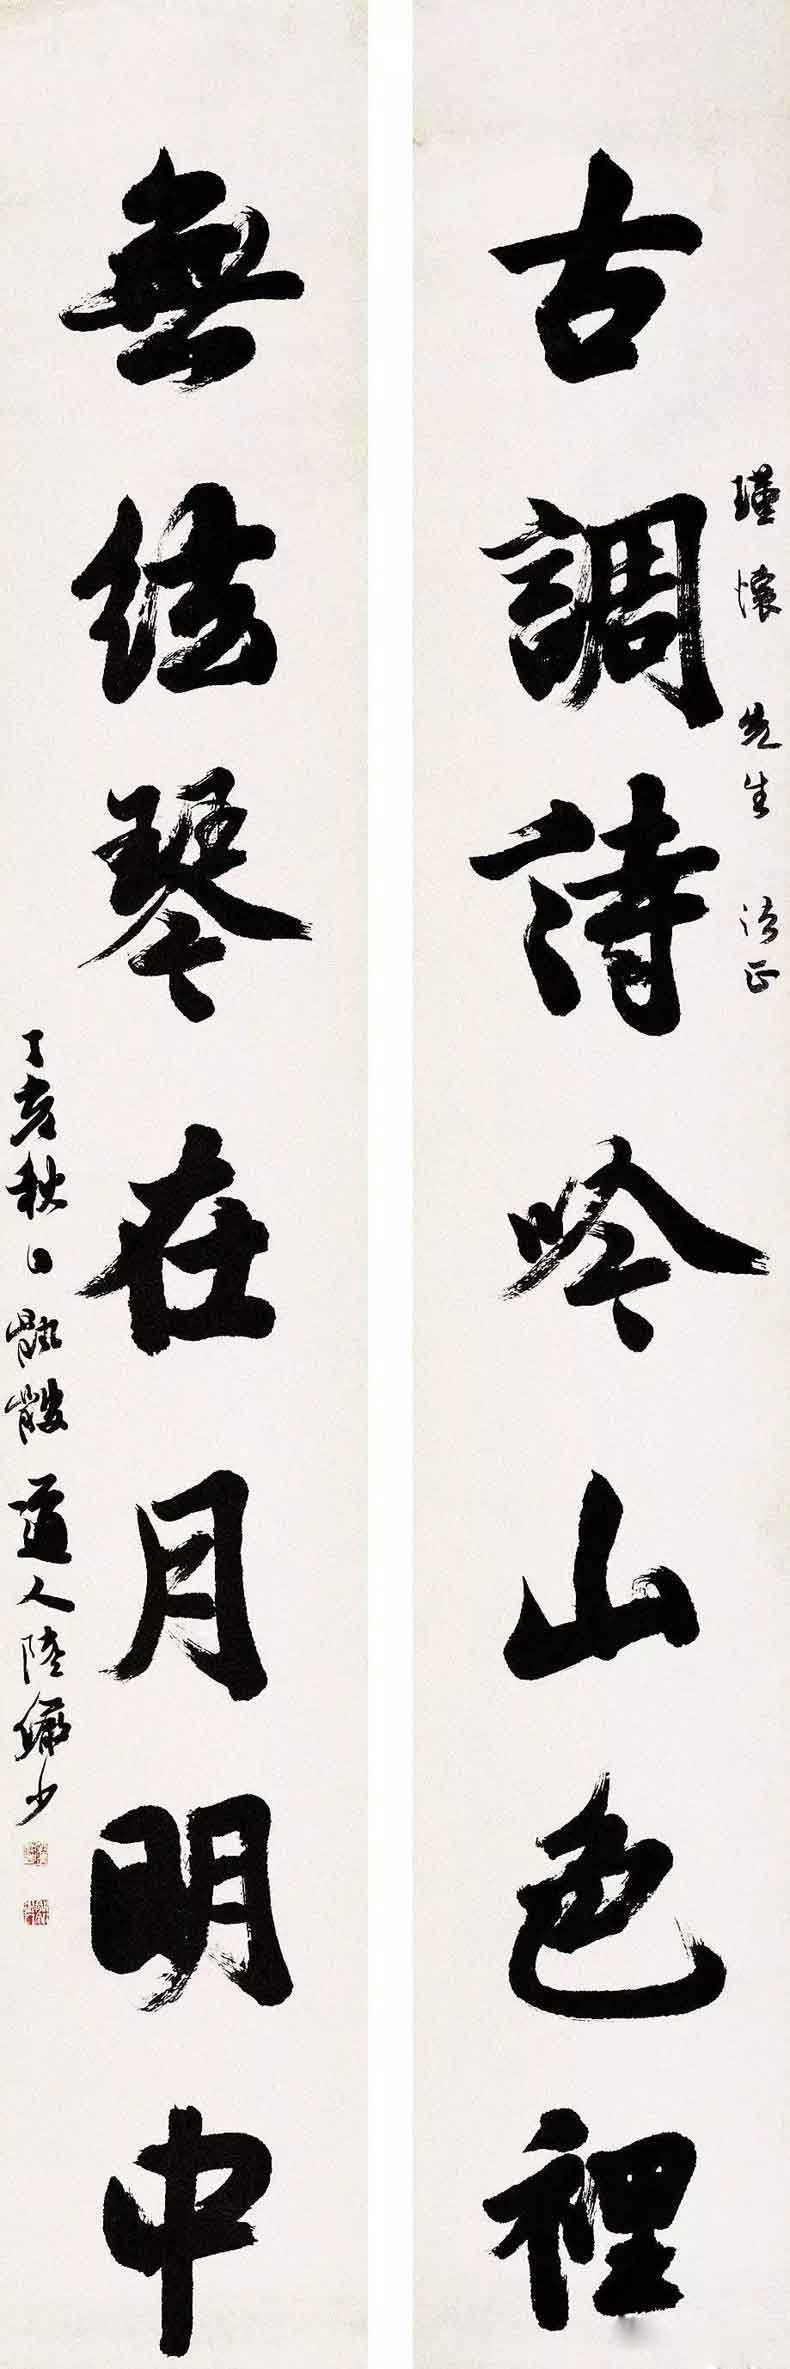 古調詩吟山色裡
瑾懷先生法正
無弦琴在月明中
丁亥秋日骩骳道人陸儼少